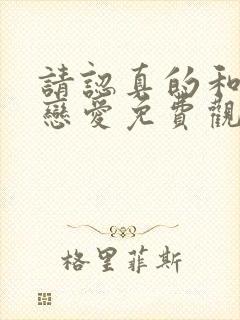 請認真的和
戀愛免費觀
格里菲斯